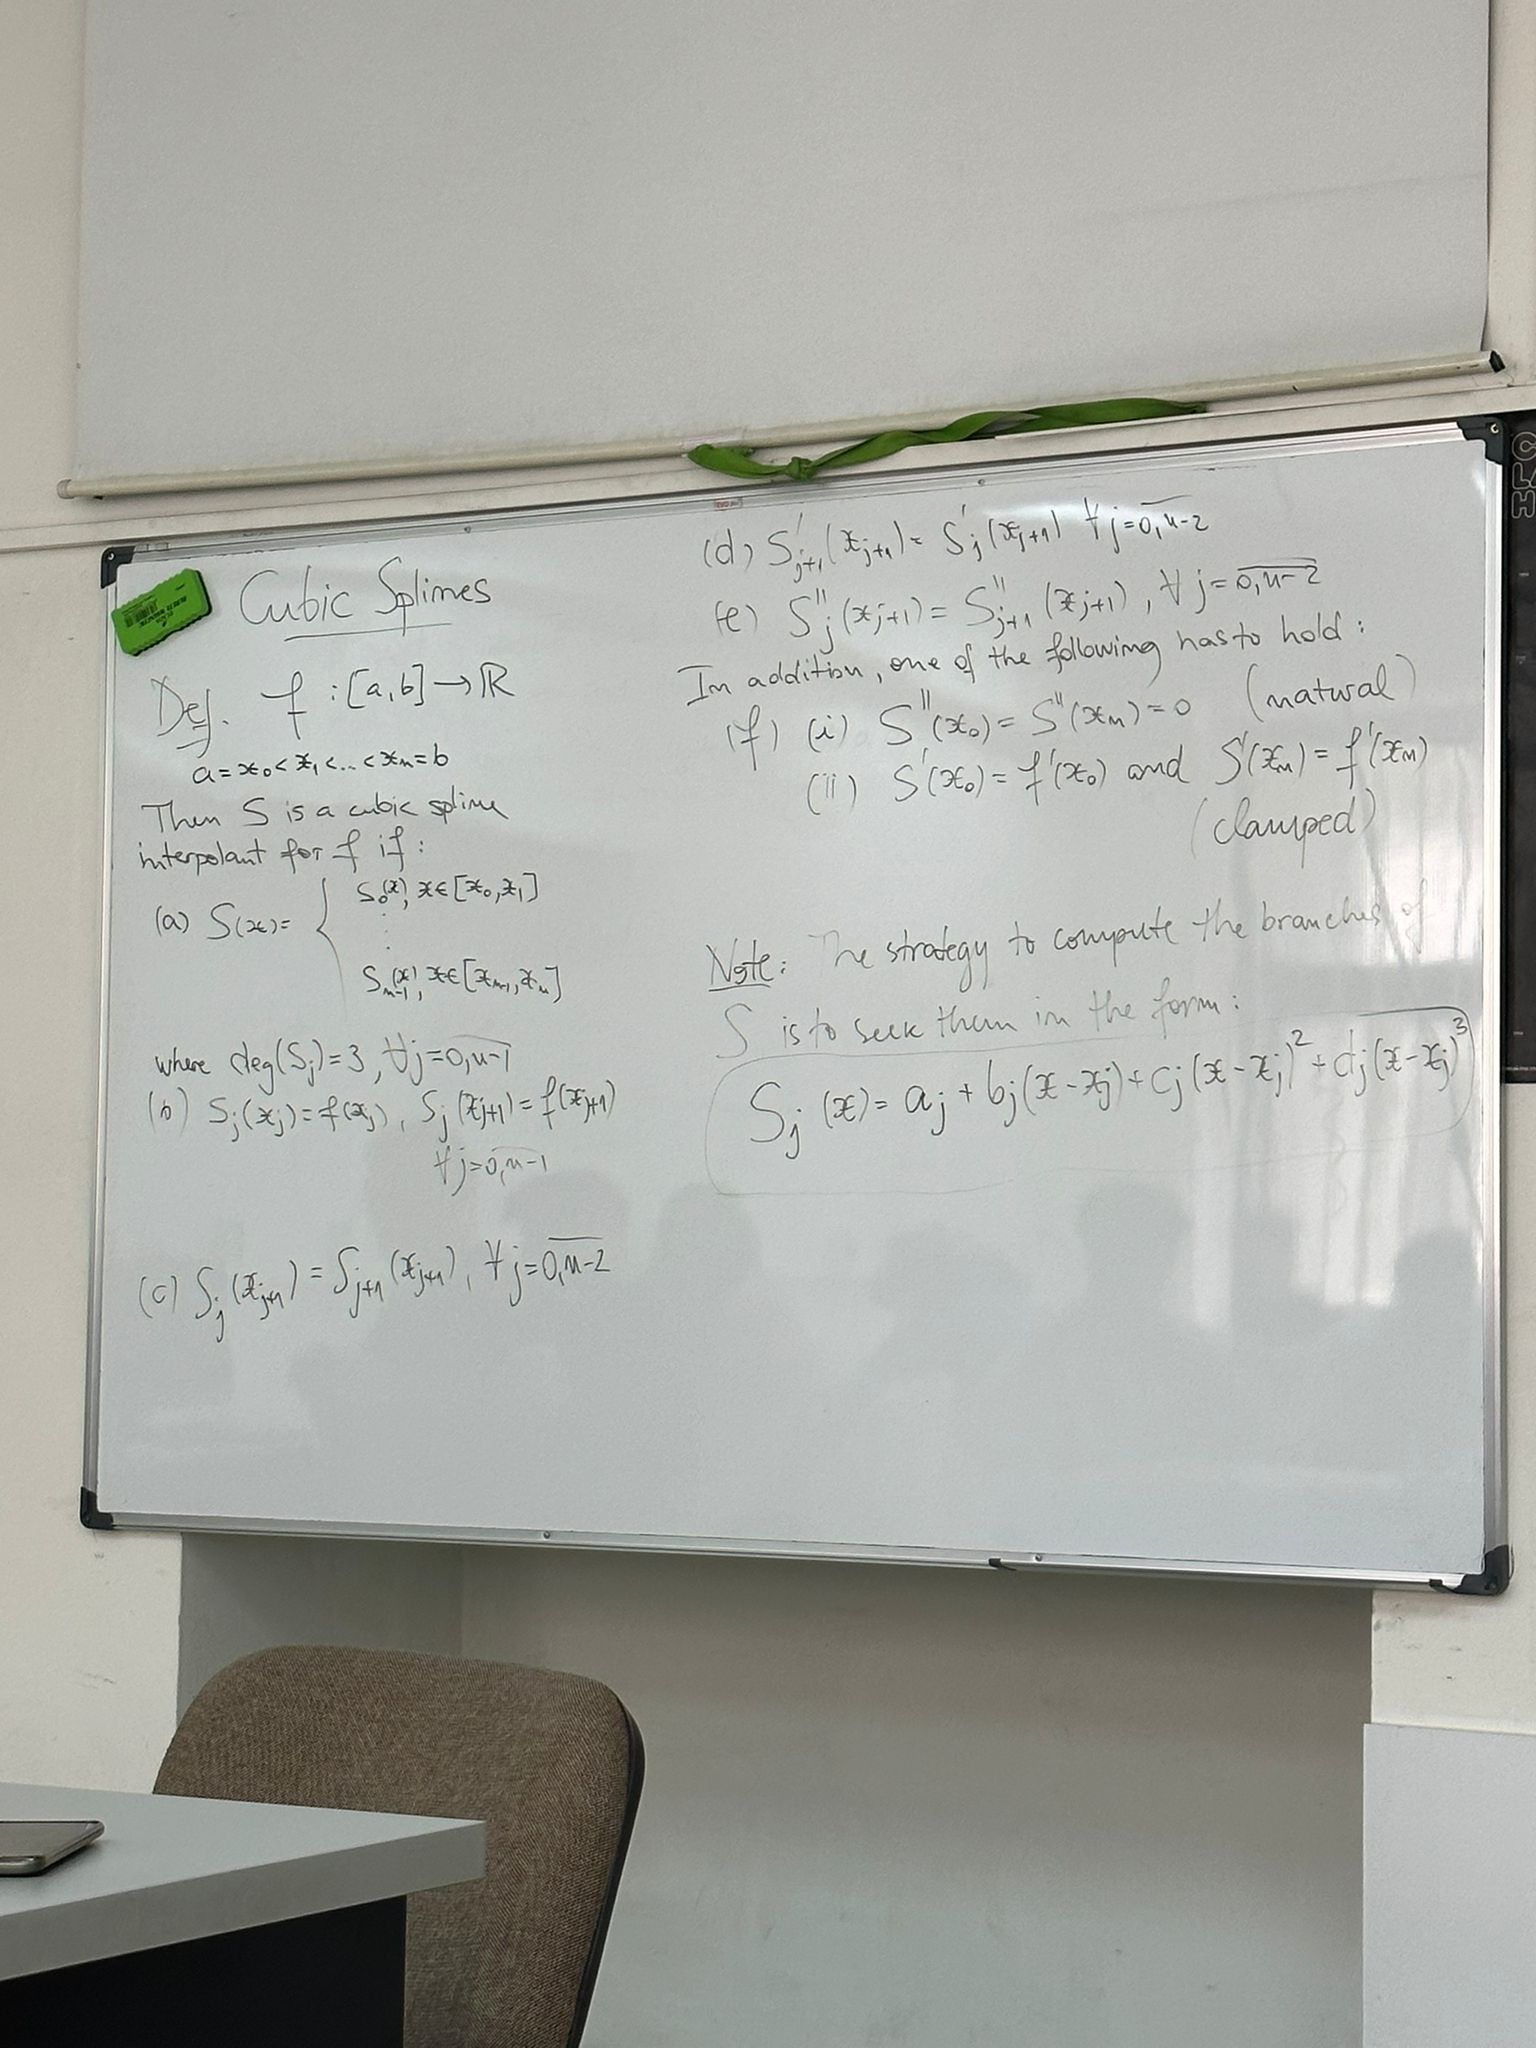 Cubic Splines
Def. f : [a,b] → ℝ
a = x₀ < x₁ < ... < xₙ = b
Then S is a cubic spline
interpolant for f if:
(a) S(x) = { S₀(x), x ∈ [x₀, x₁]
⋮
Sₙ₋₁(x), x ∈ [xₙ₋₁, xₙ]
where deg(Sⱼ) = 3, ∀ j = \overline{0,n-1}
(b) Sⱼ(xⱼ) = f(xⱼ), Sⱼ(xⱼ₊₁) = f(xⱼ₊₁)
∀ j = \overline{0,n-1}
(c) Sⱼ(xⱼ₊₁) = Sⱼ₊₁(xⱼ₊₁), ∀ j = \overline{0,n-2}
(d) S'ⱼ₊₁(xⱼ₊₁) = S'ⱼ(xⱼ₊₁) ∀ j = \overline{0,n-2}
(e) S''ⱼ(xⱼ₊₁) = S''ⱼ₊₁(xⱼ₊₁), ∀ j = \overline{0,n-2}
In addition, one of the following has to hold:
(f) (i) S''(x₀) = S''(xₙ) = 0 (natural)
(ii) S'(x₀) = f'(x₀) and S'(xₙ) = f'(xₙ)
(clamped)
Note: The strategy to compute the branches of
S is to seek them in the form:
Sⱼ(x) = aⱼ + bⱼ(x - xⱼ) + cⱼ(x - xⱼ)² + dⱼ(x - xⱼ)³